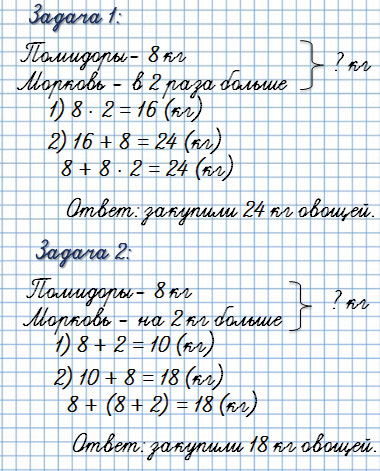 Задача 1:
Помидоры – 8 кг
? кг
Морковь – в 2 раза больше
1) 8 · 2 = 16 (кг)
2) 16 + 8 = 24 (кг)
8 + 8 · 2 = 24 (кг)
Ответ: закупили 24 кг овощей.
Задача 2:
Помидоры – 8 кг
? кг
Морковь – на 2 кг больше
1) 8 + 2 = 10 (кг)
2) 10 + 8 = 18 (кг)
8 + (8 + 2) = 18 (кг)
Ответ: закупили 18 кг овощей.